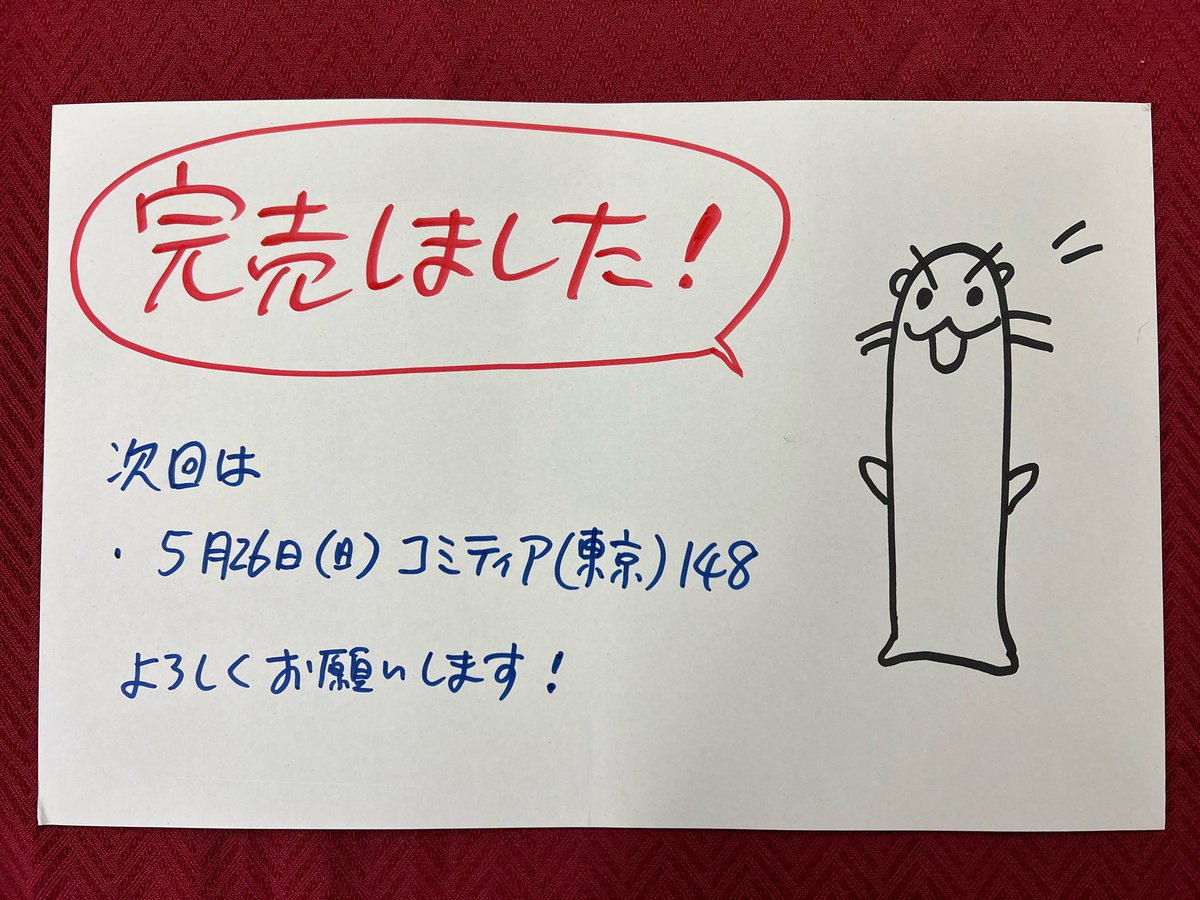 完売しました!
次回は
・5月26日(日)コミティア(東京)148
よろしくお願いします!